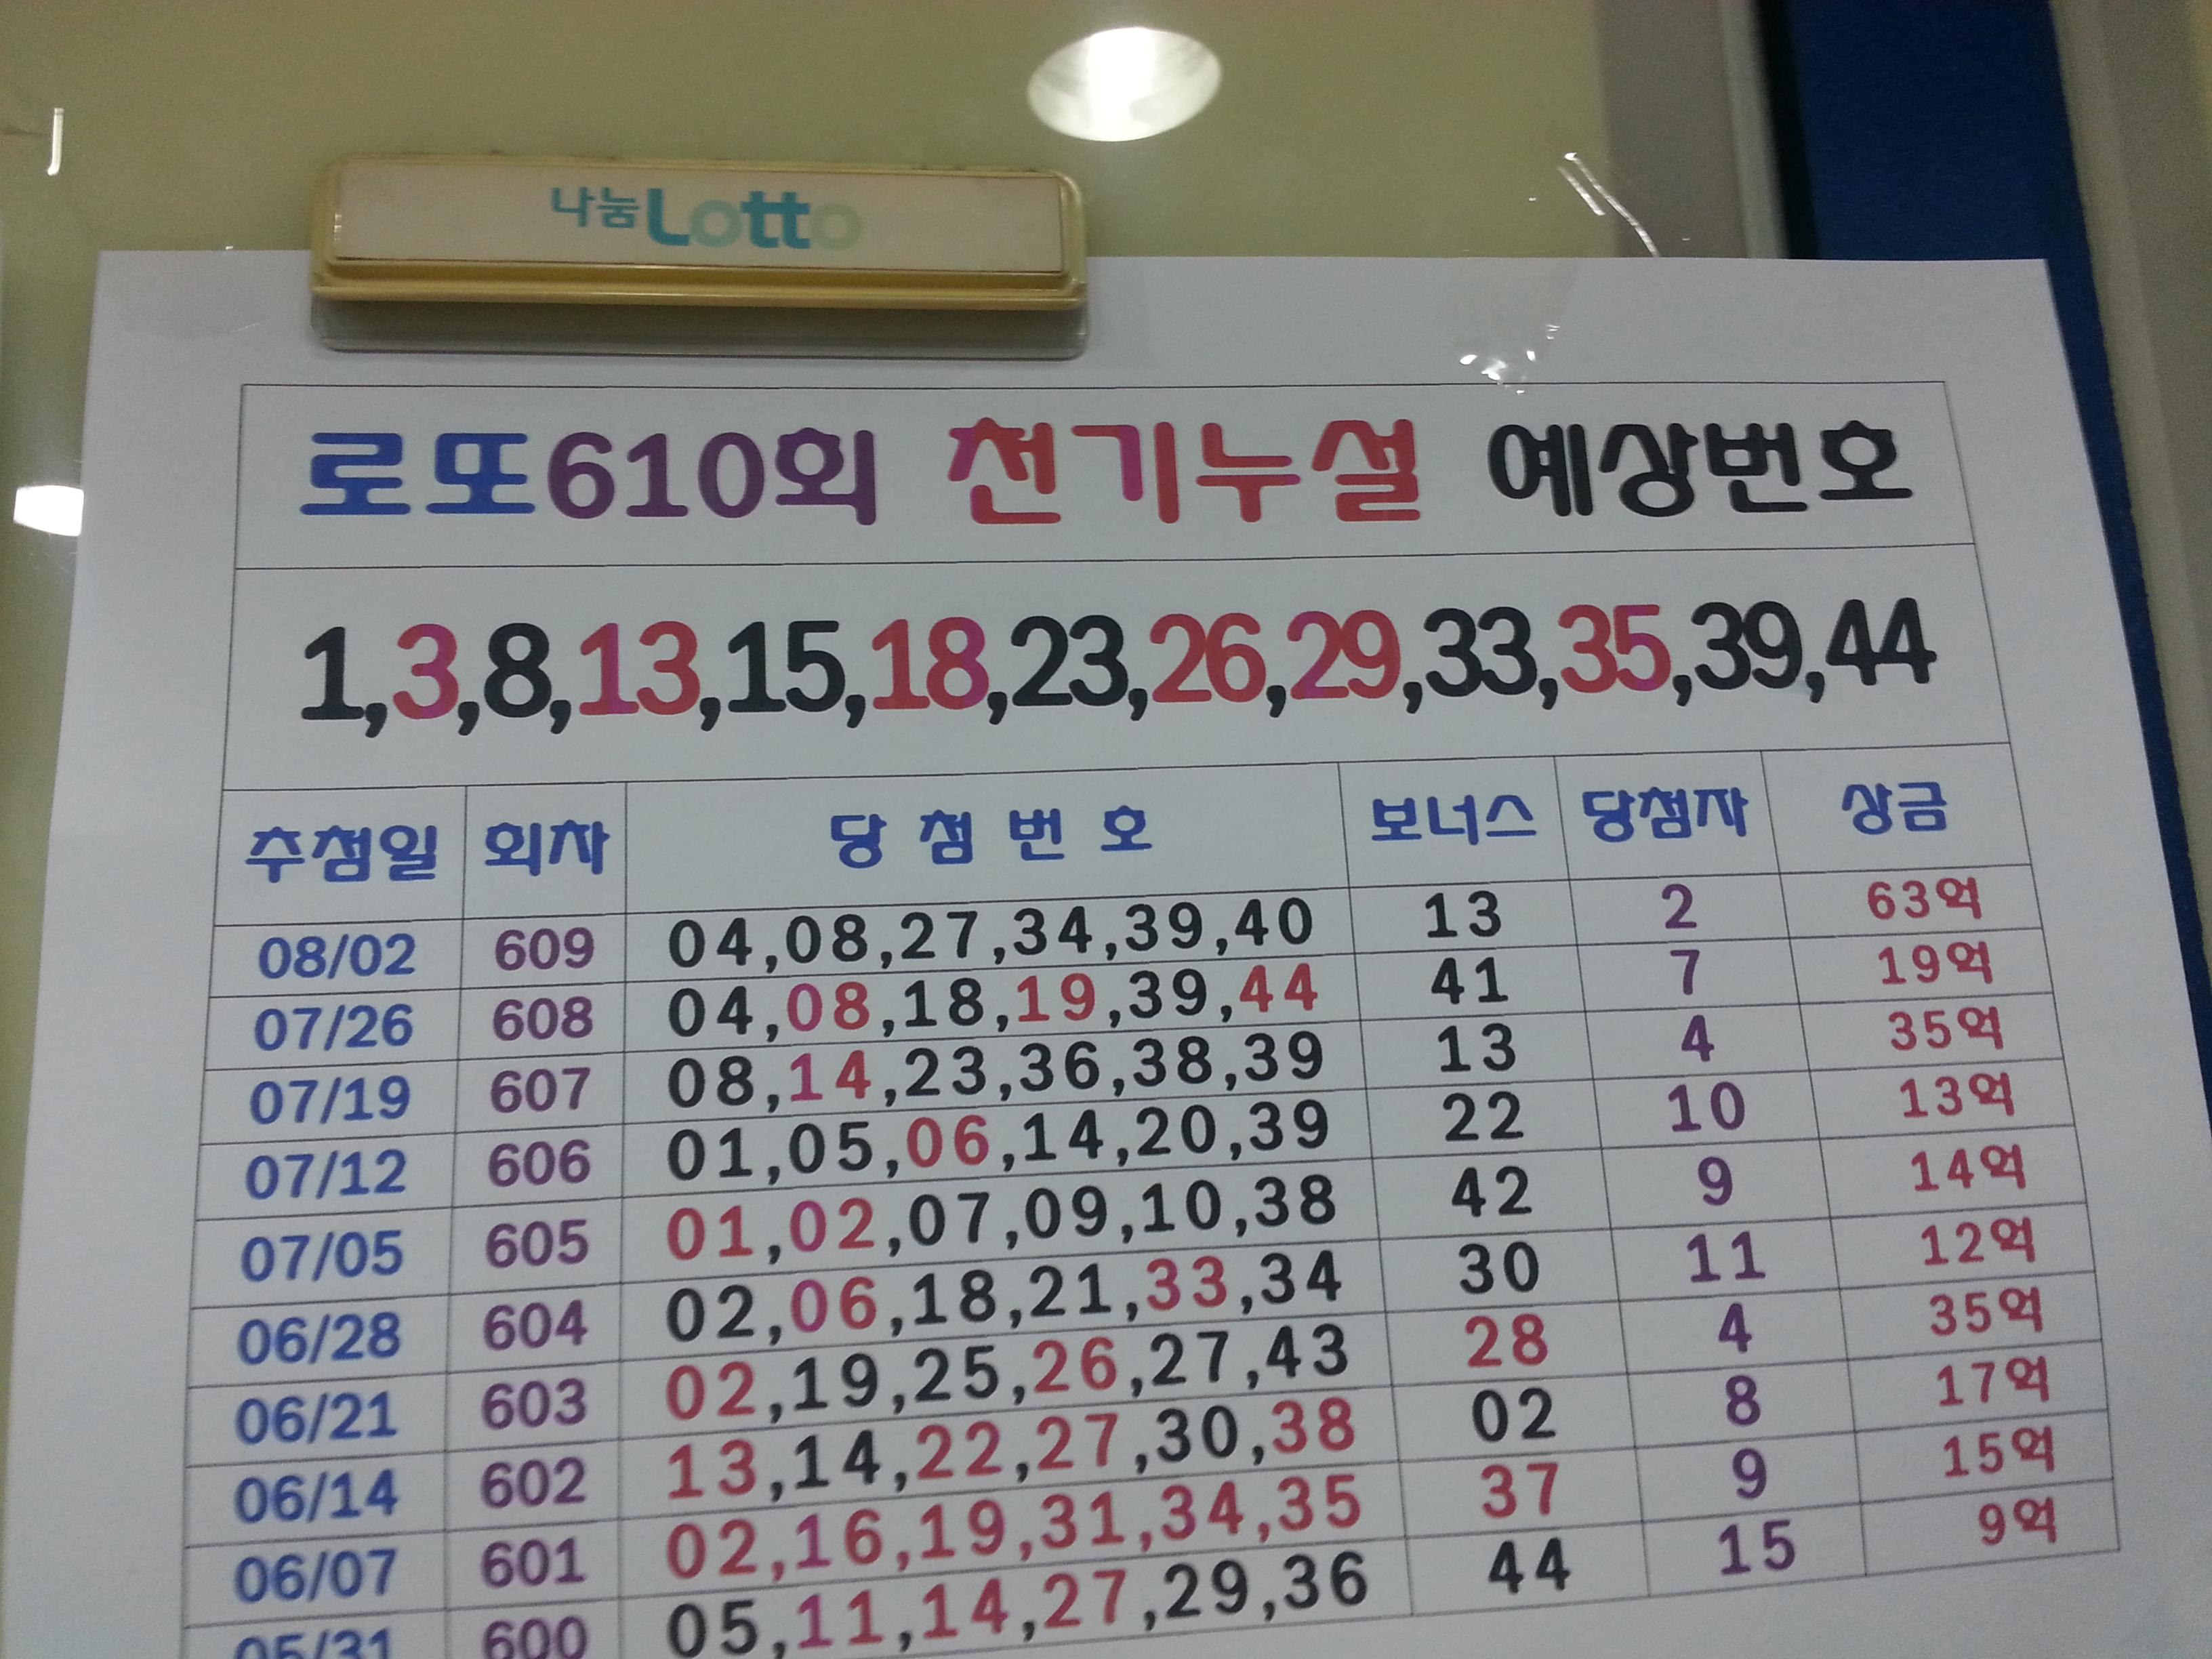 나눔Lotto
로또610회 천기누설 예상번호
1,3,8,13,15,18,23,26,29,33,35,39,44
추첨일 회차 당 첨 번 호 보너스 당첨자 상금
08/02 609 04,08,27,34,39,40 13 2 63억
07/26 608 04,08,18,19,39,44 41 7 19억
07/19 607 08,14,23,36,38,39 13 4 35억
07/12 606 01,05,06,14,20,39 22 10 13억
07/05 605 01,02,07,09,10,38 42 9 14억
06/28 604 02,06,18,21,33,34 30 11 12억
06/21 603 02,19,25,26,27,43 28 4 35억
06/14 602 13,14,22,27,30,38 02 8 17억
06/07 601 02,16,19,31,34,35 37 9 15억
05/31 600 05,11,14,27,29,36 44 15 9억